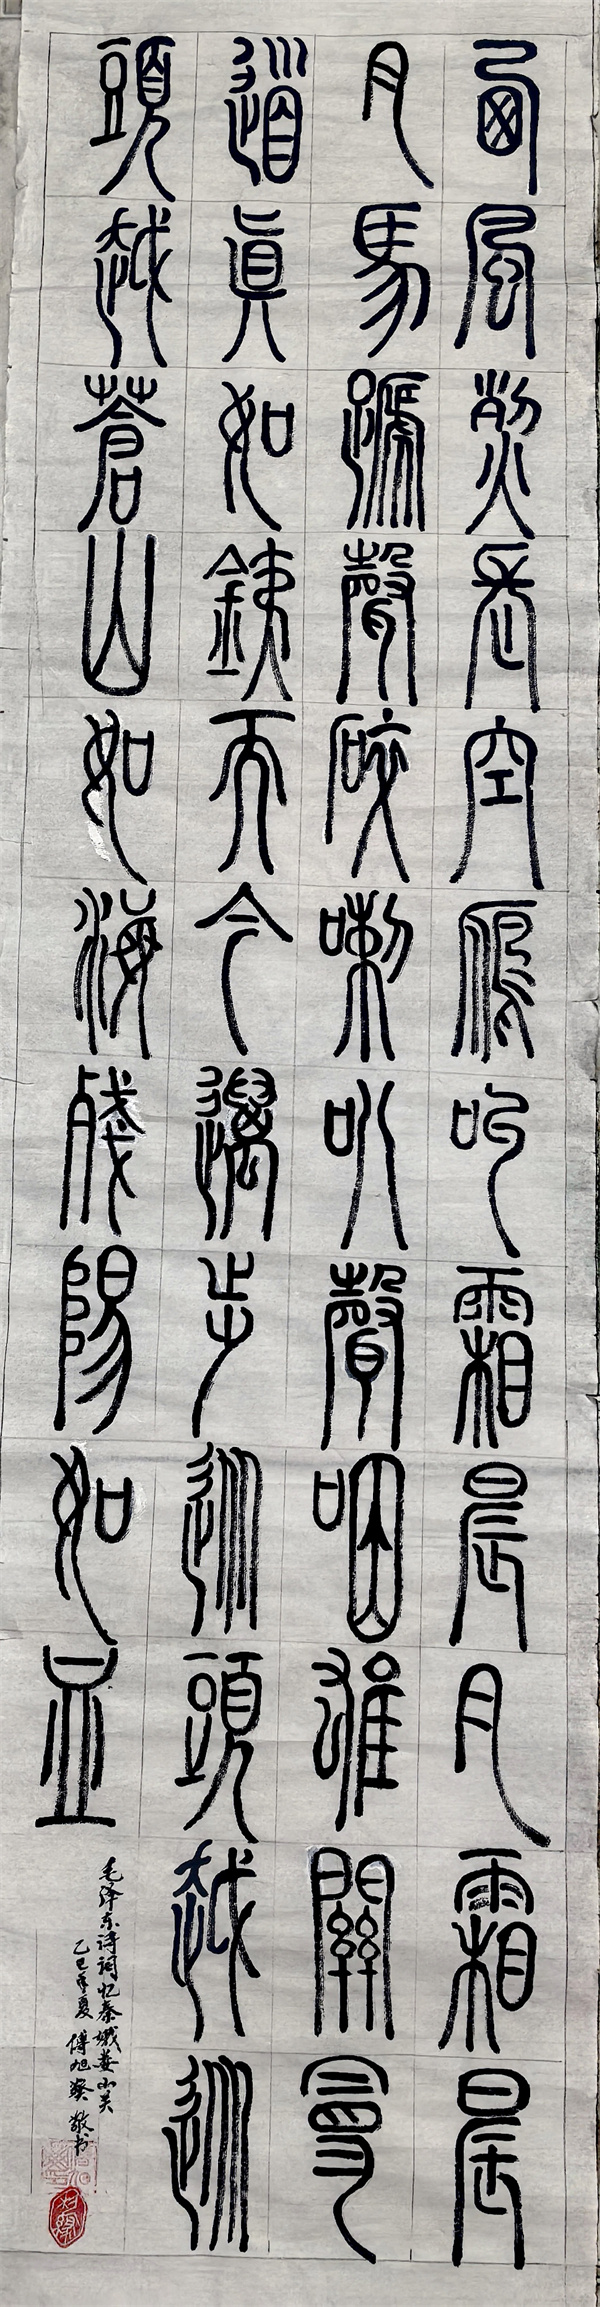 西風烈長空鴈叫霜晨月霜晨
月馬蹄聲碎喇叭聲咽雄關曼
道眞如鐵而今邁步從頭越從
頭越蒼山如海殘陽如血
毛泽东诗词忆秦娥娄山关
乙巳年夏 傅旭 敬书